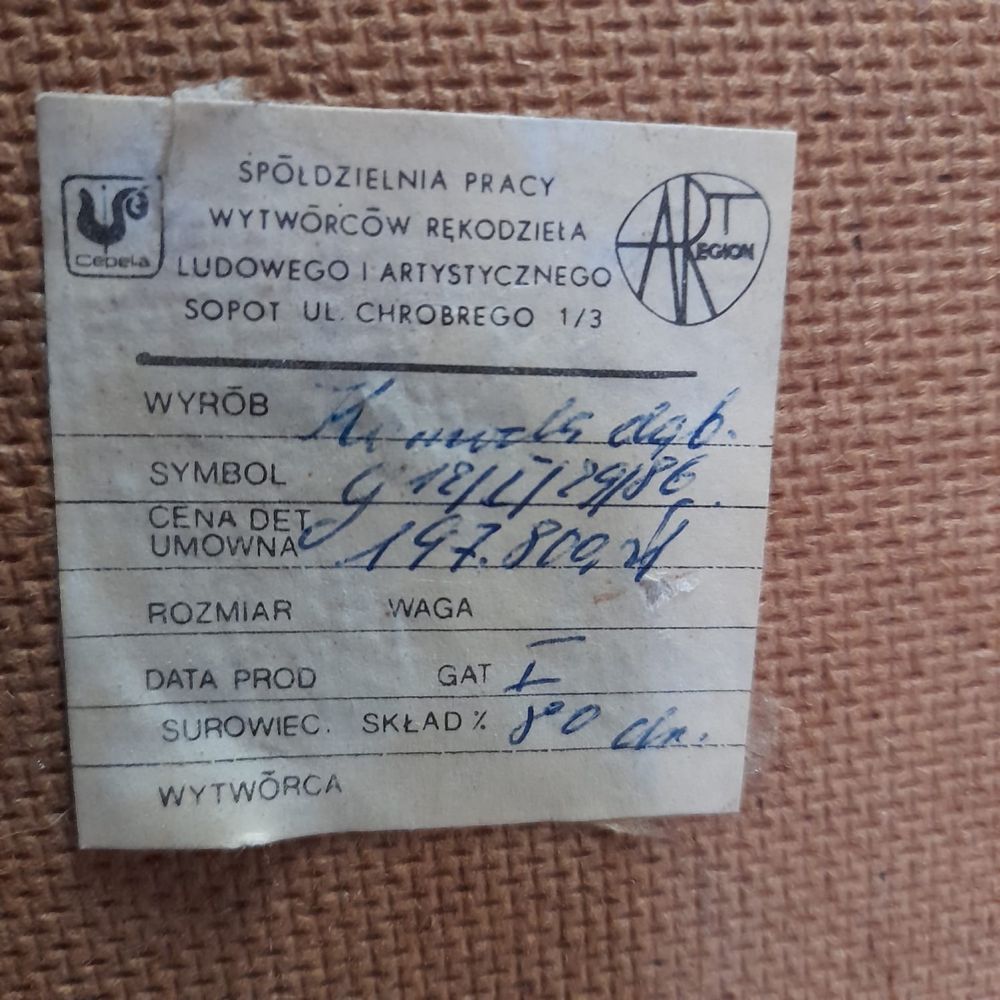 SPÓŁDZIELNIA PRACY
WYTWÓRCÓW RĘKODZIEŁA
LUDOWEGO I ARTYSTYCZNEGO
SOPOT UL. CHROBREGO 1/3
Cepelia
ART REGION
WYRÓB dąb.
SYMBOL 12/I/29/86
CENA DET. UMOWNA 197.800, zł
ROZMIAR WAGA
DATA PROD GAT I
SUROWIEC. SKŁAD % 80
WYTWÓRCA